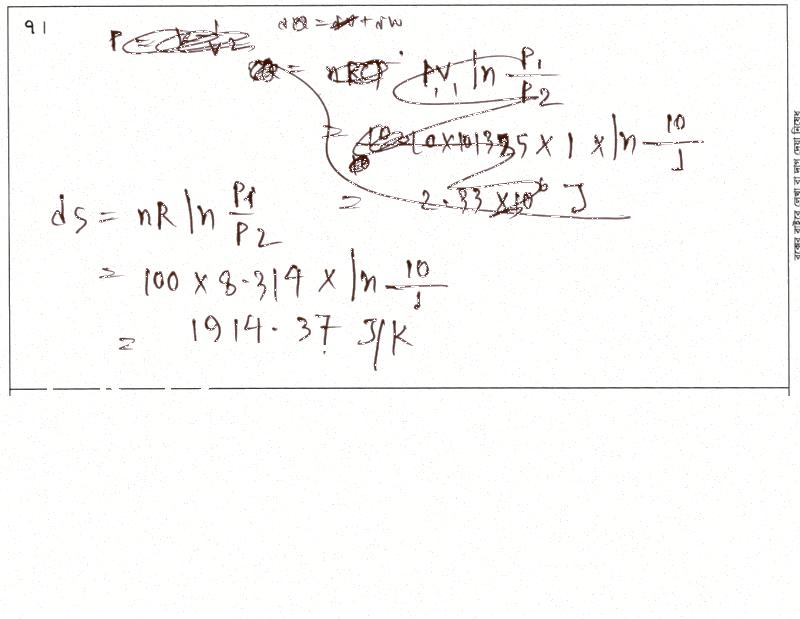 91
dQ = dU + dW
P
= nRT PV₁ ln P₁/P₂
= 10×101325 × 1 × ln 10/1
= 2.33 × 10⁶ J
ds = nR ln P₁/P₂
= 100 × 8.314 × ln 10/1
= 1914.37 J/K
বক্সের বাইরে লেখা বা দাগ দেয়া নিষেধ